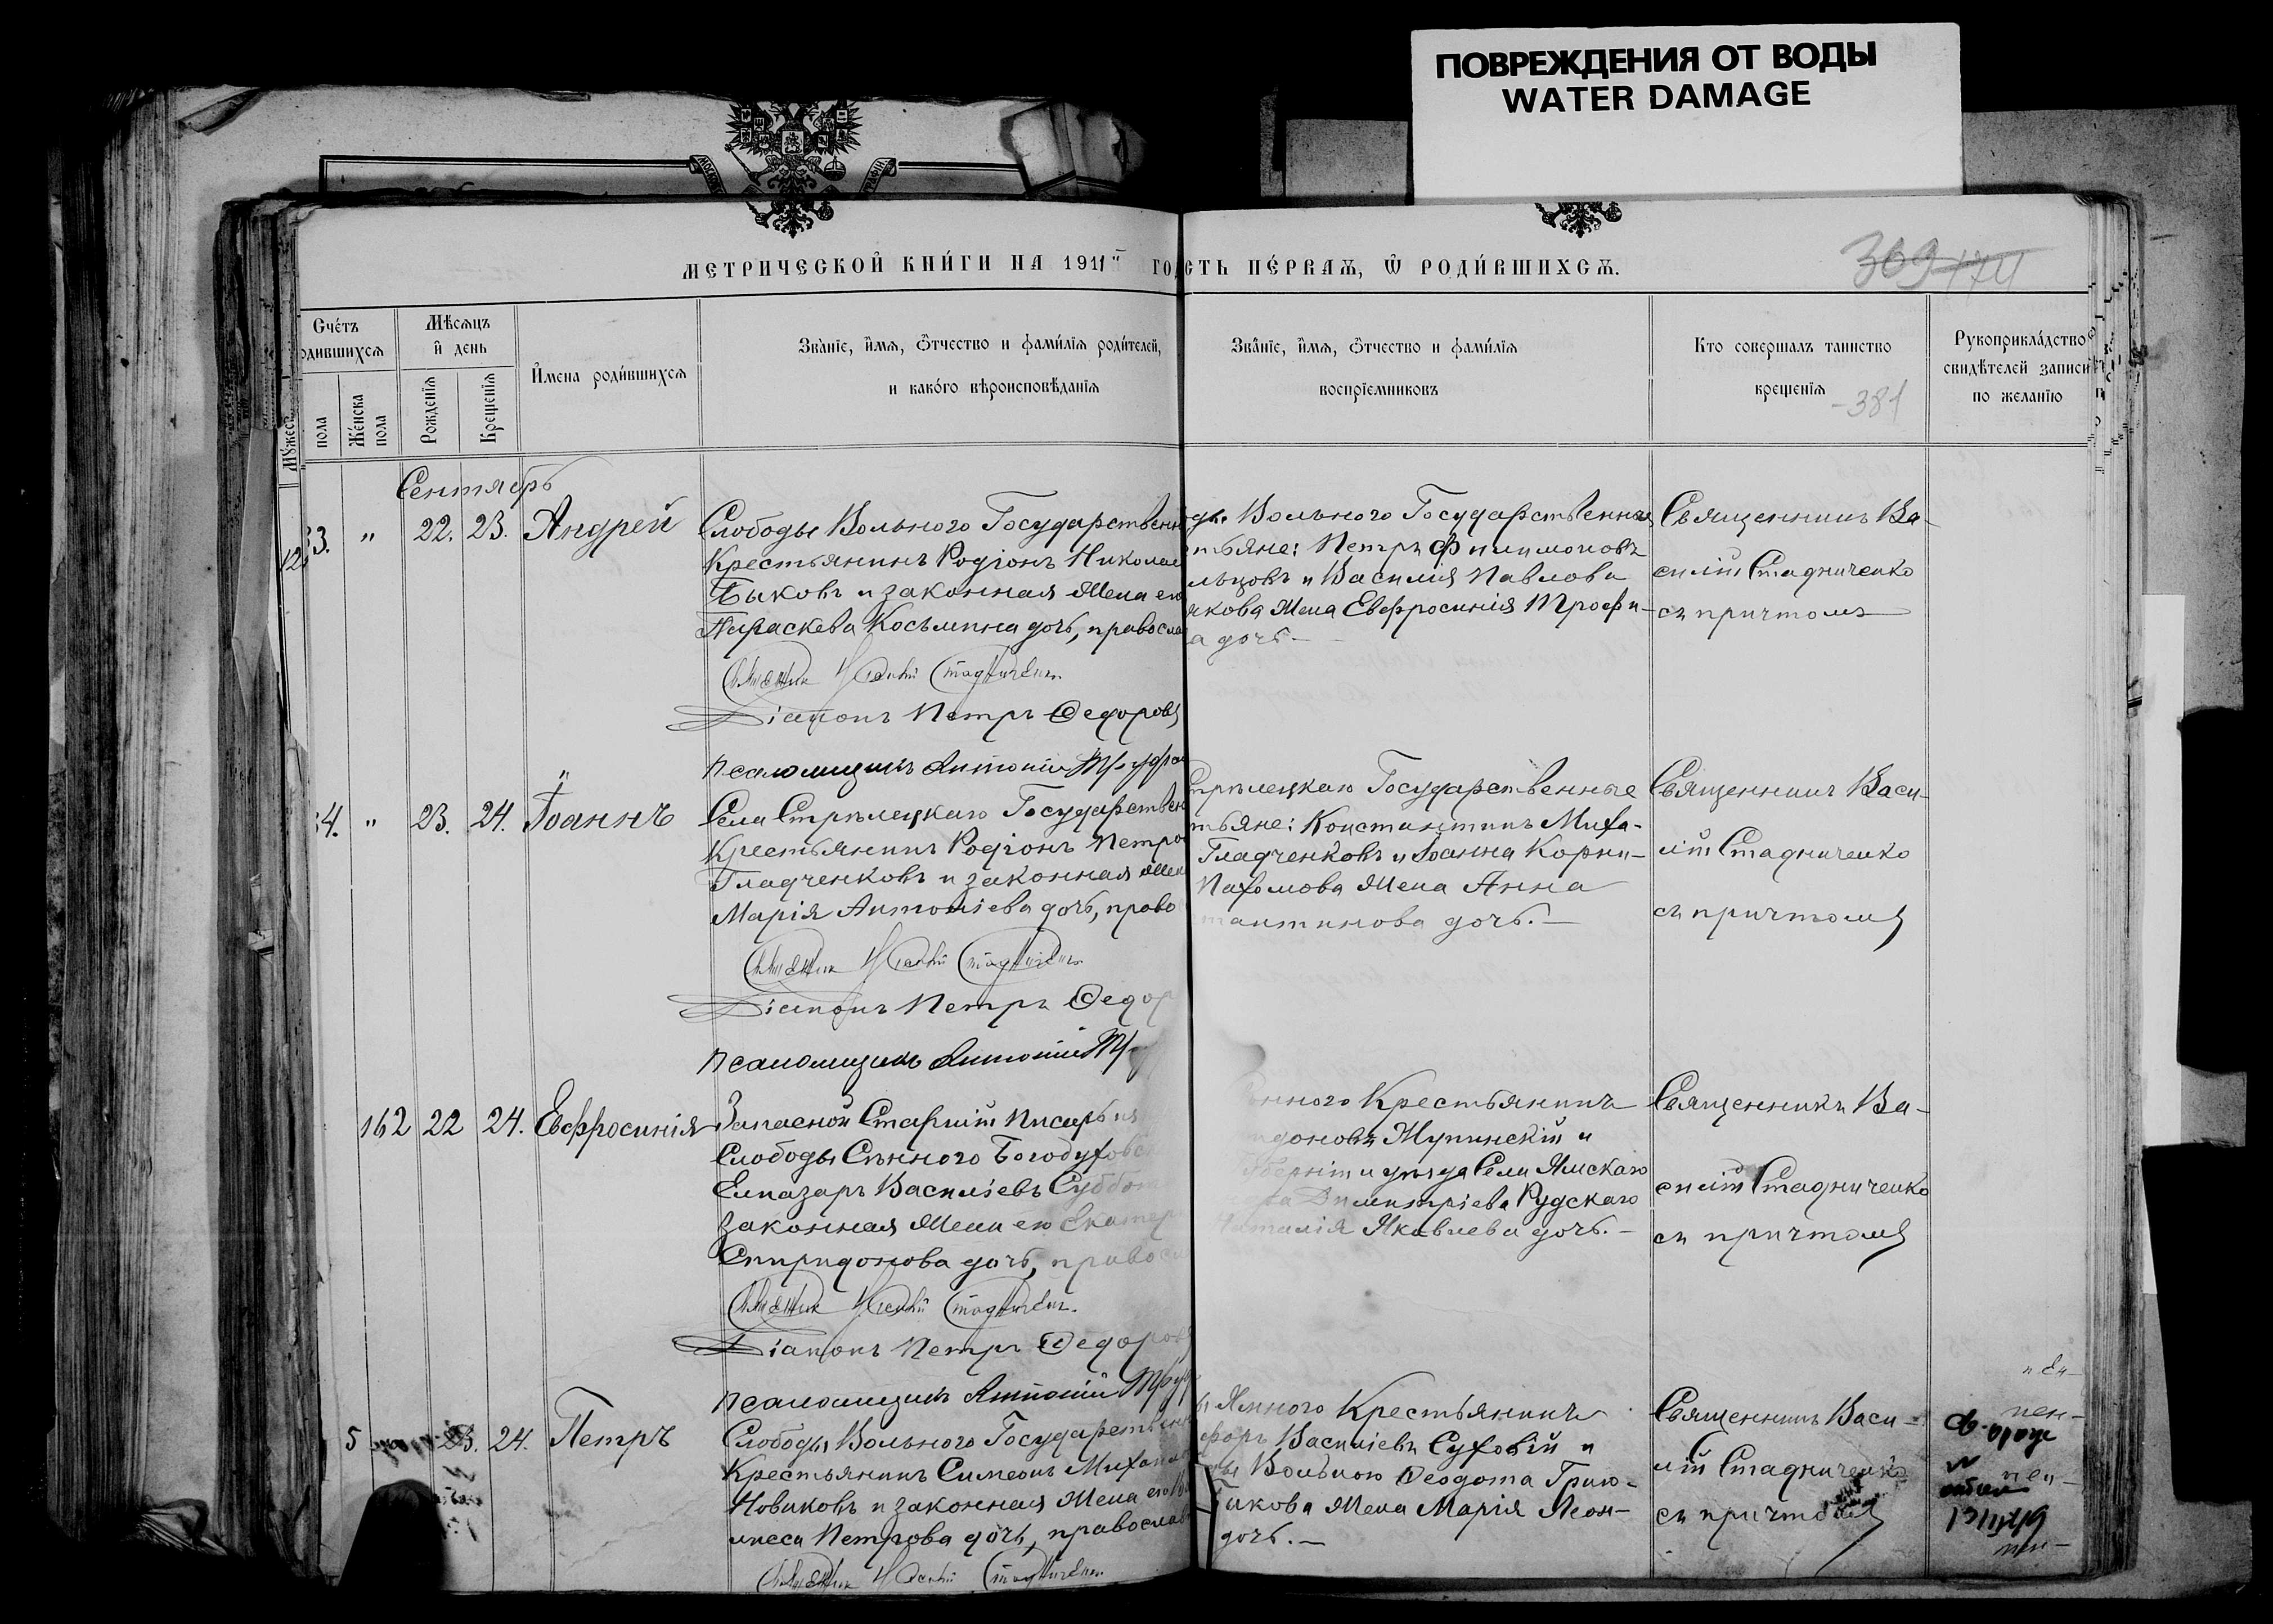 ПОВРЕЖДЕНИЯ ОТ ВОДЫ
WATER DAMAGE
МЕТРИЧЕСКОЙ КНИГИ НА 1911 ГО
СТЬ ПЕРВАѦ, Ѿ РОДИВШИХСѦ.
369 174
Счетъ
одившихсѧ
Мужес
пола
Женска
пола
Мѣсѧцъ
и день
Рожденіѧ
Крещеніѧ
Имена родившихсѧ
Званіе, имѧ, ѿчество и фамиліѧ родителей,
и какого вѣроисповѣданіѧ
Званіе, имѧ, ѿчество и фамиліѧ
воспріемниковъ
Кто совершалъ таинство
крещеніѧ
381
Рукоприкладство
свидѣтелей записи
по желанію
Сентябрь
33. " 22. 23. Андрей
Слободы Вольного Государственн
Крестьянинъ Родіонъ Никола
Быковъ и законная жена его
Параскева Косьмина дочь, правосла
Діаконъ Петръ Ѳедоровъ
Псаломщикъ Антоній
ды Вольного Государственные
тьяне: Петръ Филимоновъ
льцовъ и Василія Павлова
якова жена Евфросинія Трофи-
а дочь.—
Священникъ Ва-
силій Стадниченко
съ причтомъ
34. " 23. 24. Іоаннъ
Села Стрѣлецкаго Государствен
Крестьянинъ Родіонъ Петро
Гладченковъ и законная жен
Марія Антоніева дочь, право
Діаконъ Петръ Ѳедор
Псаломщикъ Антоній
трѣлецкаго Государственные
тьяне: Константинъ Миха-
Гладченковъ и Іоанна Корни-
Пахомова жена Анна
тантинова дочь.—
Священникъ Васи-
лій Стадниченко
съ причтомъ
162 22 24. Евфросинія
Запасной Старшій Писарь из
Слободы Сѣнного Богодуховск
Елеазаръ Васильевъ Суббот
законная жена его Екатер
Спиридонова дочь, правосл
Діаконъ Петръ Ѳедоровъ
Псаломщикъ Антоній
нного Крестьянинъ
доновъ Жупинскій и
берніи и уѣзда Села Ямскаго
Димитріева Рудскаго
Наталія Яковлева дочь.—
Священникъ Ва-
силій Стадниченко
съ причтомъ
5 23. 24. Петръ
Слободы Вольного Государствен
Крестьянинъ Симеонъ Михаил
Новиковъ и законная жена его
Петрова дочь, православ
Ямного Крестьянинъ
форъ Васильевъ Суховій и
Вольного Ѳеодота Григо-
кова жена Марія Леон-
дочь.—
Священникъ Васи-
лій Стадниченко
съ причтомъ